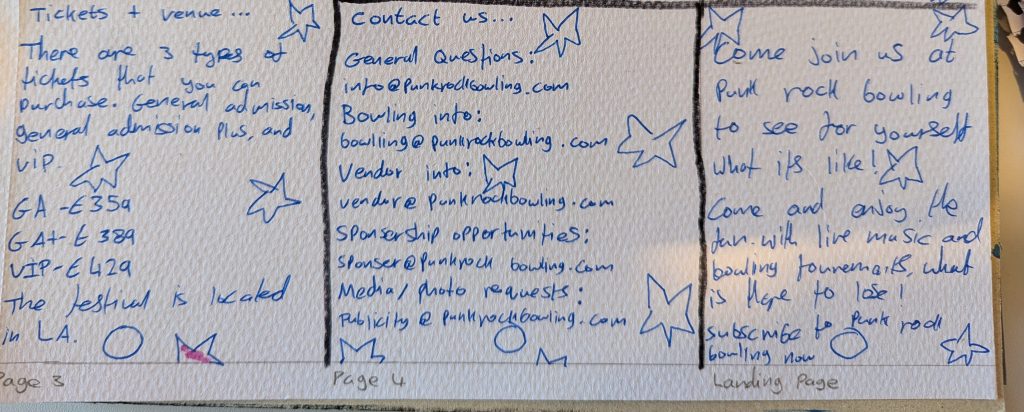 Tickets + venue...
There are 3 types of
tickets that you can
purchase. General admission,
general admission plus, and
VIP.
GA - £359
GA+ - £389
VIP - £429
The festival is located
in LA.
Page 3
Contact us...
General Questions:
info@punkrockbowling.com
Bowling info:
bowlling@punkrockbowling.com
Vendor info:
vendor@punkrockbowling.com
Sponsership opportunities:
sponser@punkrock bowling.com
Media/photo requests:
publicity@punkrockbowling.com
Page 4
Come join us at
Punk rock bowling
to see for yourself
what its like!
Come and enjoy the
fun with live music and
bowling tourements, what
is there to lose!
subscribe to Punk rock
bowling now
Landing Page